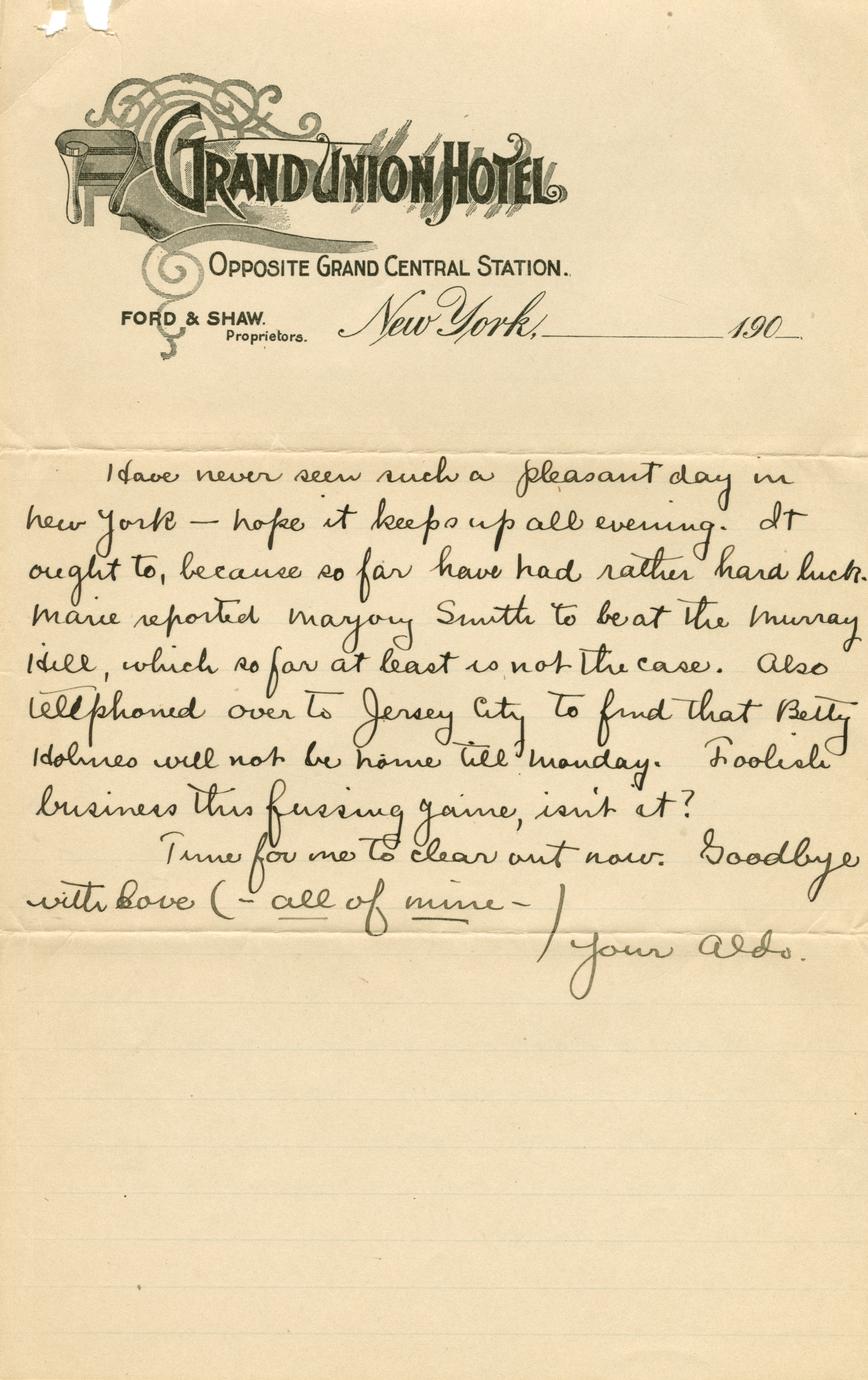 GRAND UNION HOTEL
OPPOSITE GRAND CENTRAL STATION.
FORD & SHAW.
Proprietors.
New York, 190
Have never seen such a pleasant day in
New York — hope it keeps up all evening. It
ought to, because so far have had rather hard luck.
Marie reported Marjory Smith to be at the Murray
Hill, which so far at least is not the case. Also
telephoned over to Jersey City to find that Betty
Holmes will not be home till Monday. Foolish
business this fussing game, isn't it?
Time for me to clear out now. Goodbye
with Love (- all of mine -)
Your Aldo.